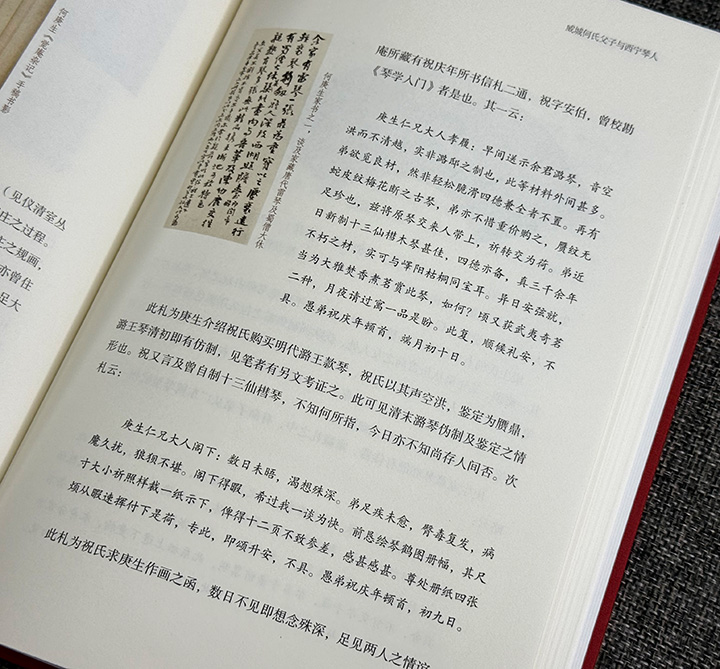 何庚生《爱莲杂记》手稿书影
（见仪清室丛
庄之过程。
生之规画，
亦曾住
足大
何庚生家书之一，谈及家藏唐代雷琴及蜀僧大休
咸城何氏父子与西宁琴人
庵所藏有祝庆年所书信札二通，祝字安伯，曾校勘
《琴学入门》者是也。其一云：
庚生仁兄大人孝履：早间送示余君潞琴，音空
洪而不清越，实非潞邸之制也，此等材料外间甚多。
弟欲觅良材，然非轻松脆滑四德兼全者不置。再有
蛇皮纹梅花断之古琴，弟亦不惜重价购之，赝纹无
足珍也，兹将原琴交来人带上，祈转交为荷。弟近
日新制十三仙楷木琴甚佳，四德亦备，真三千余年
不朽之材，实可与峄阳枯桐同宝耳。异日安弦就，
当为大雅焚香煮茗赏此琴，如何？顷又获武夷奇茗
二种，月夜请过寓一品是盼。此复，顺候礼安，不
具。愚弟祝庆年顿首，端月初十日。
此札为庚生介绍祝氏购买明代潞王款琴，祝氏以其声空洪，鉴定为赝鼎，
潞王琴清初即有仿制，见笔者有另文考证之。此可见清末潞琴伪制及鉴定之情
形也。祝又言及曾自制十三仙楷琴，不知何所指，今日亦不知尚存人间否。次
札云：
庚生仁兄大人阁下：数日未晤，渴想殊深。弟足疾未愈，臂毒复发，病
魔久扰，狼狈不堪。阁下得暇，希过我一谈为快。前恳绘琴鹤图册幅，其尺
寸大小祈照样裁一纸示下，俾得十二页不致参差，感甚感甚。尊处册纸四张
烦从暇速挥付下是荷，专此，即颂升安，不具。愚弟祝庆年顿首，初九日。
此札为祝氏求庚生作画之函，数日不见即想念殊深，足见两人之情谊